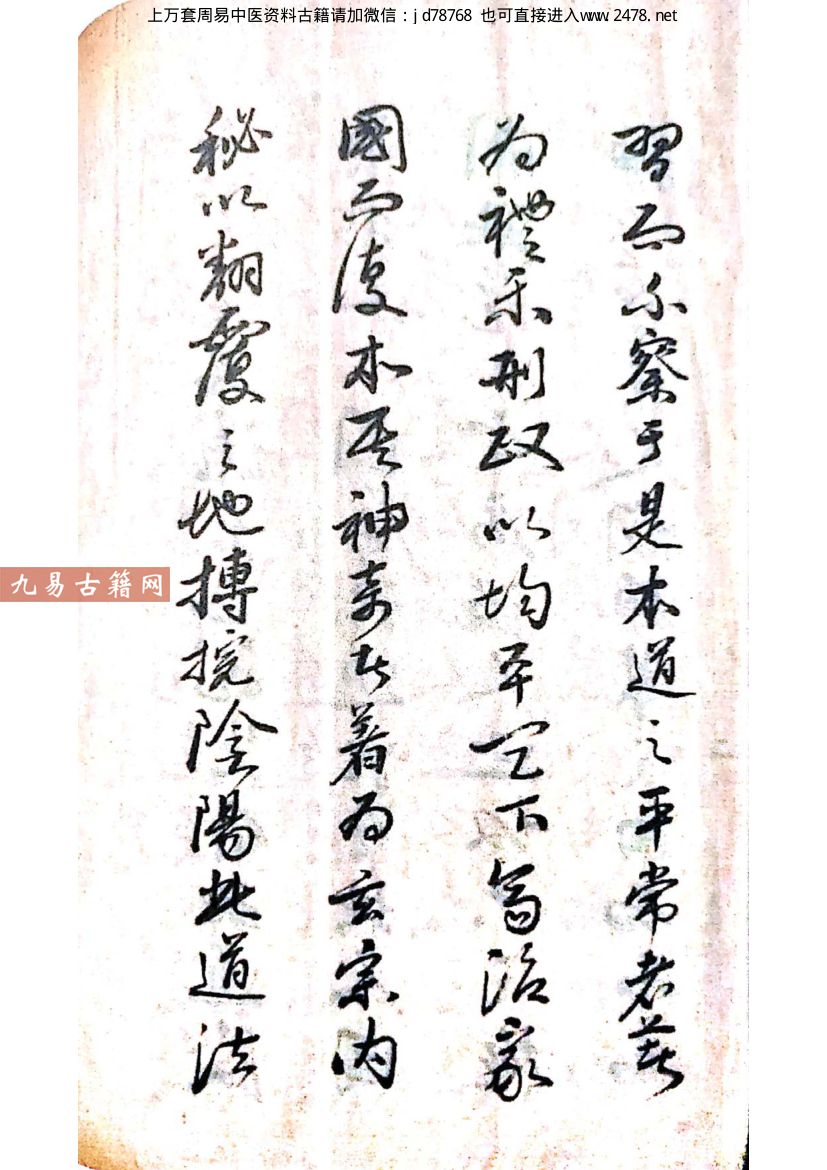 上万套周易中医资料古籍请加微信：jd78768 也可直接进入www.2478.net
習而不察于是本道之平常者著
为禮乐刑政以均平天下齊治家
國而復本吾神奇者著为玄宗内
秘以翻覆之地摶捖陰陽此道法
九易古籍网